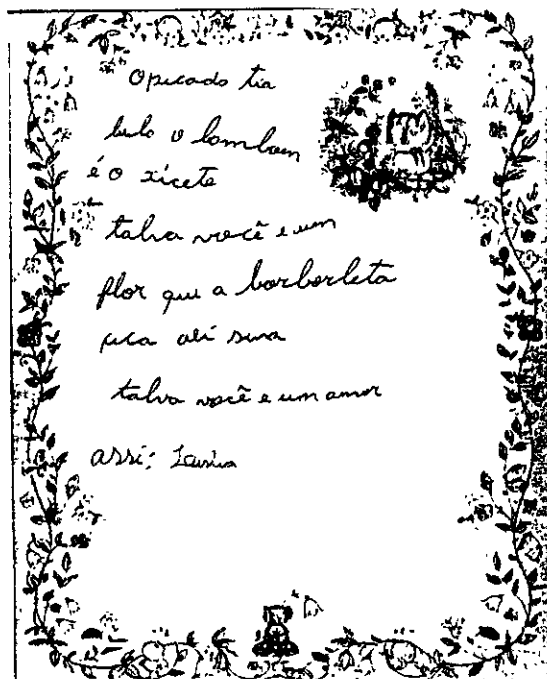 Opicado tia
bulo o bombom
é o xicete
talva você e um
flor qui a borborleta
fica ali sima
talva você e um amor
assi: